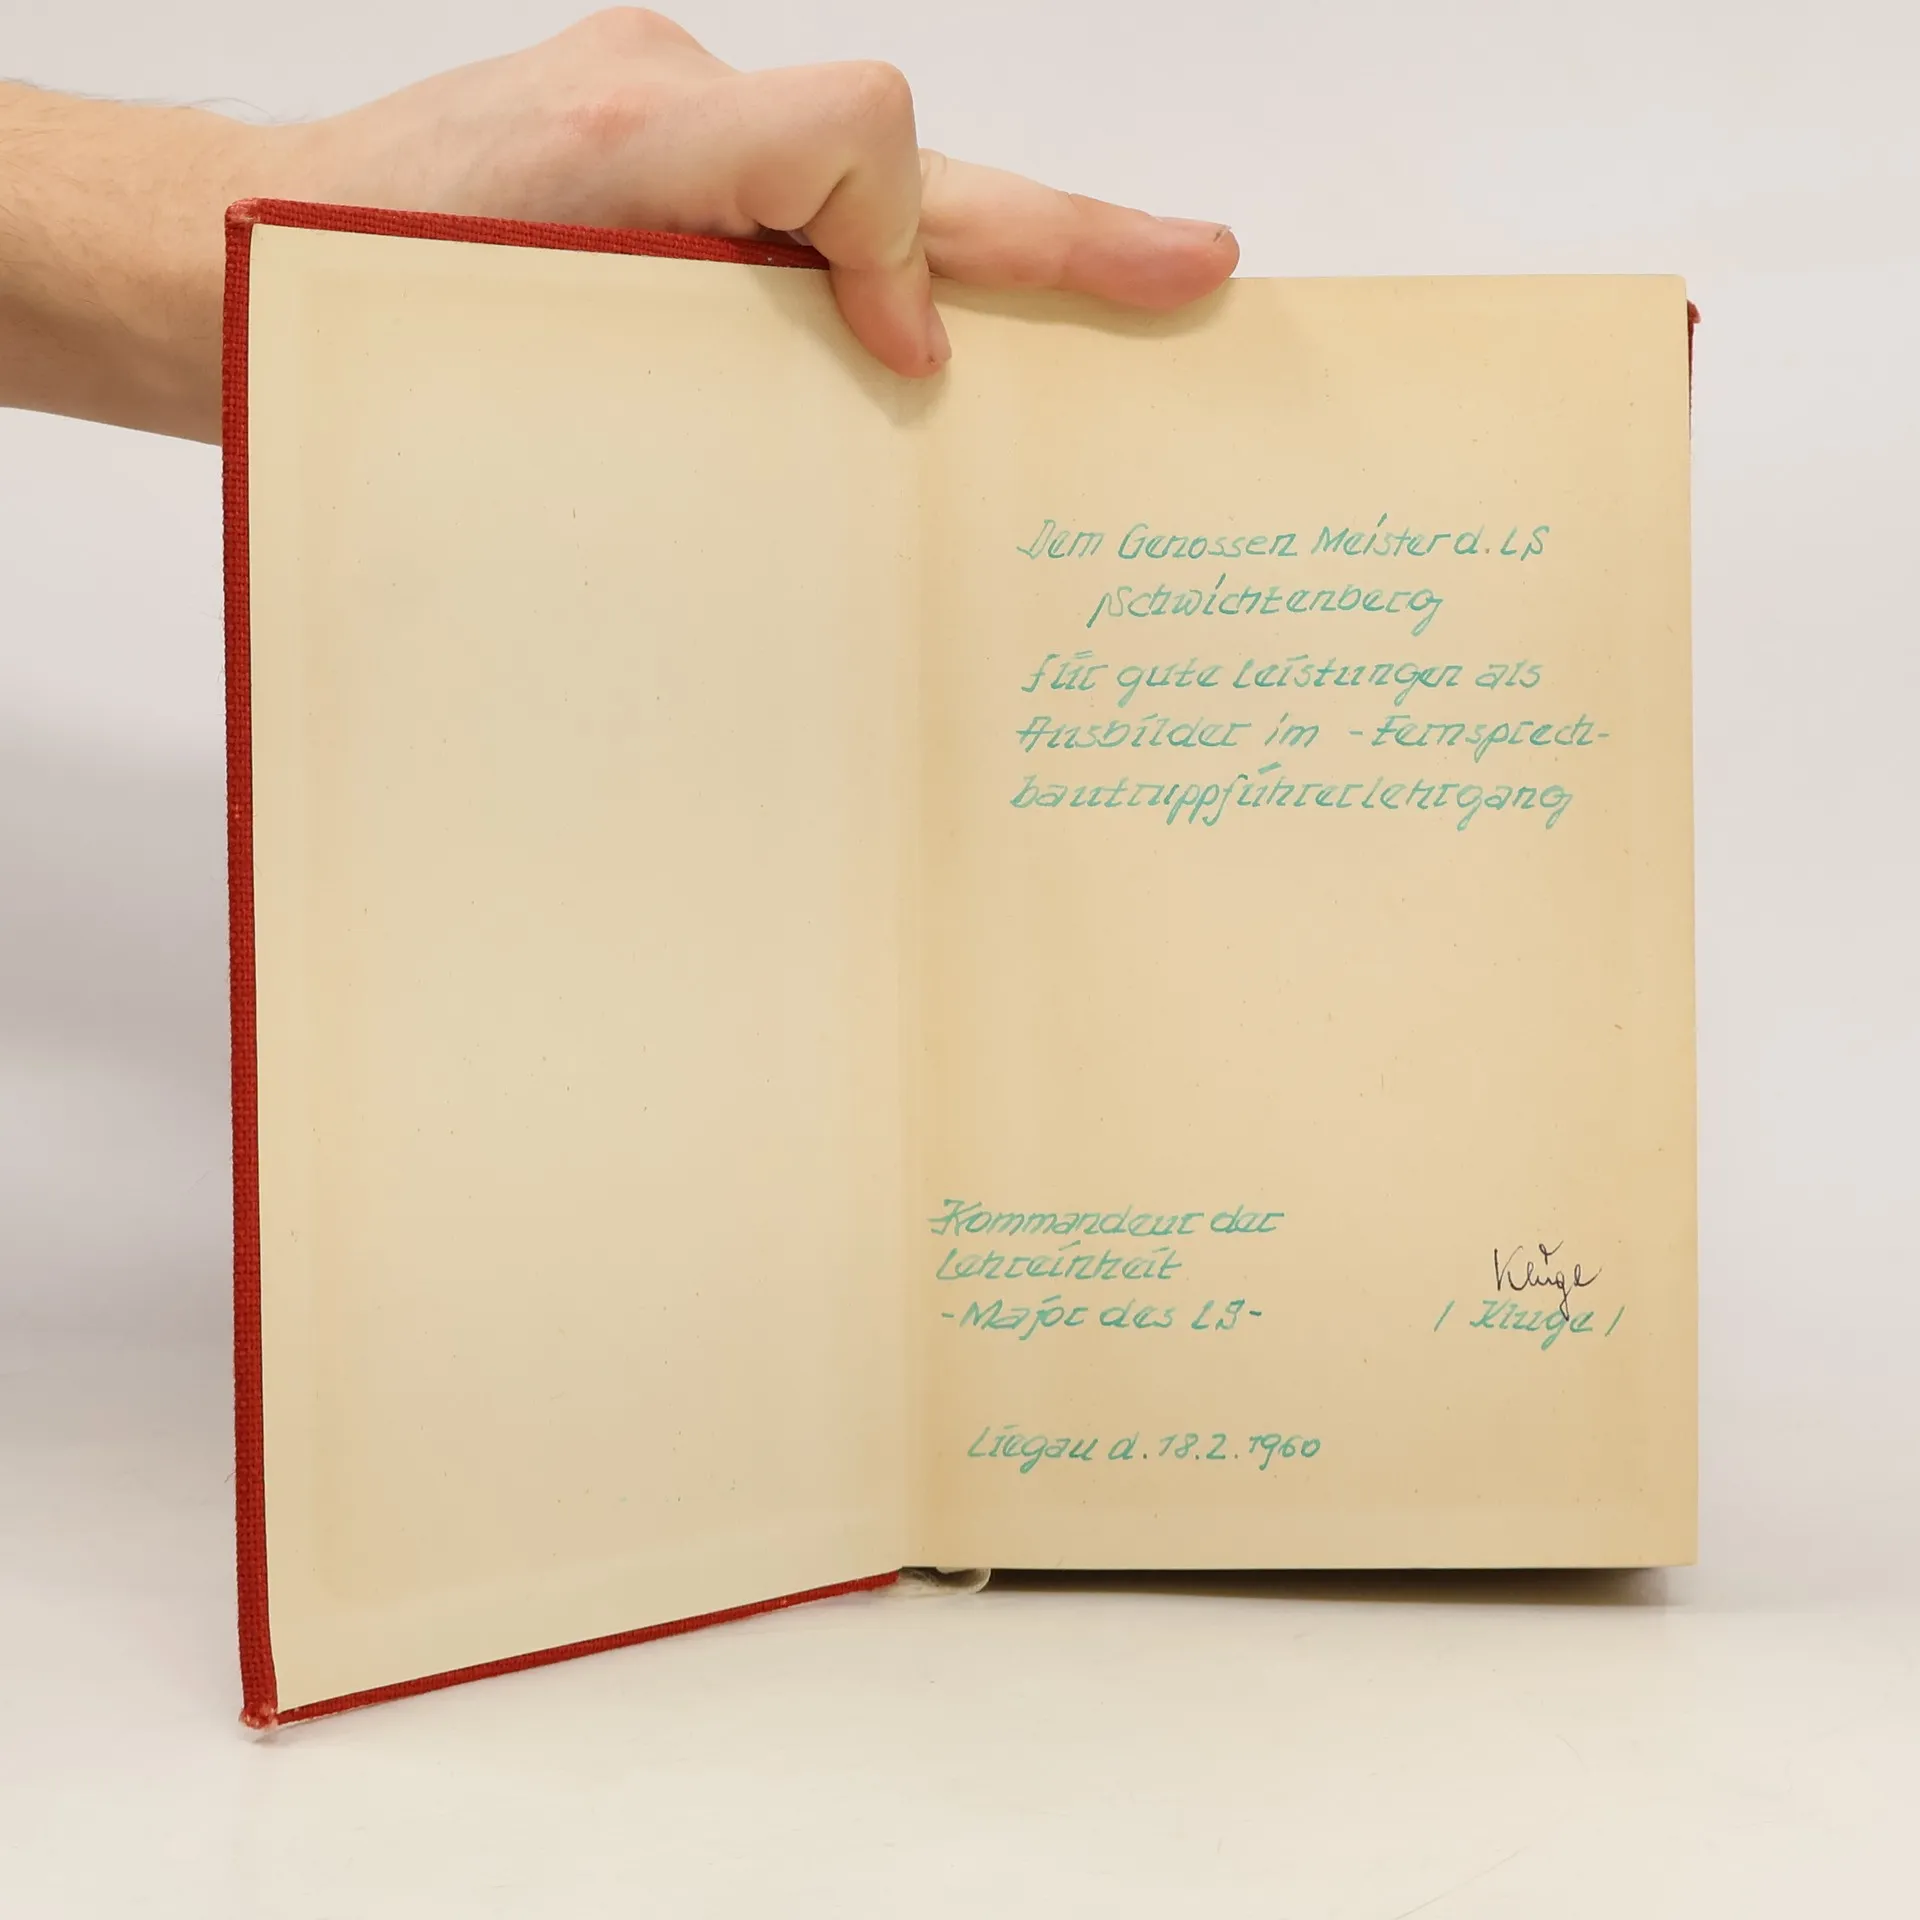 Dem Genossen Meister d. LS
Schwichtenberg
für gute Leistungen als
Ausbilder im - Fernsprech-
bautruppführerlehrgang
Kommandeur der
Lehreinheit
- Major des LS -
Kluge
/ Kluge /
Liegau d. 18.2.1960